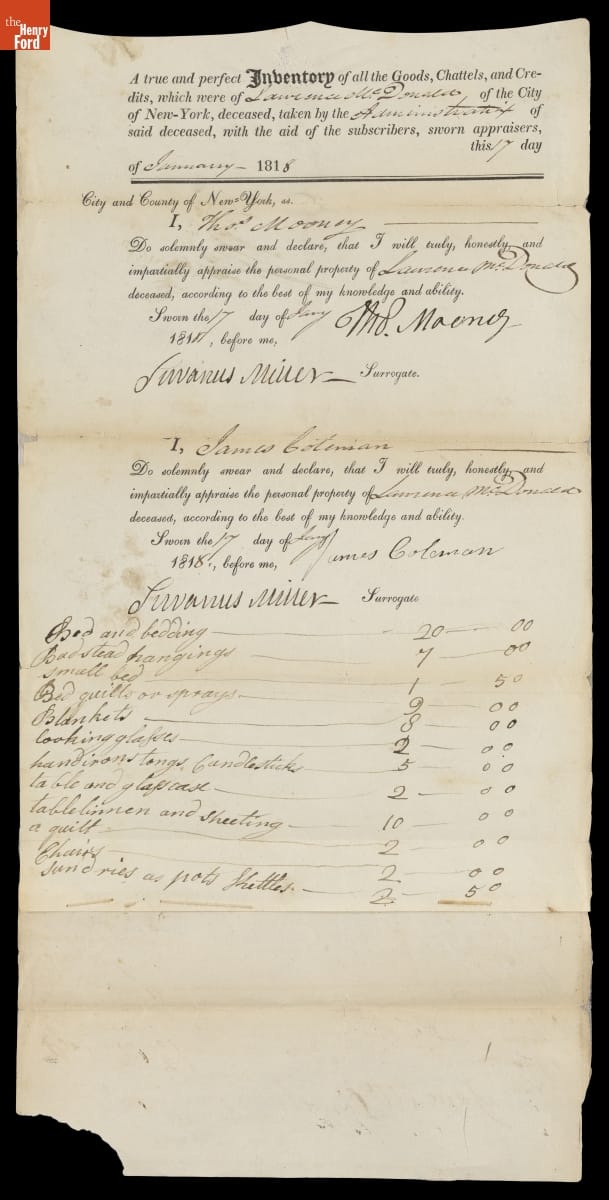 the Henry Ford
A true and perfect Inventory of all the Goods, Chattels, and Cre-
dits, which were of Lawrence McDonald, of the City
of New-York, deceased, taken by the Administratrix of
said deceased, with the aid of the subscribers, sworn appraisers,
this 17 day
of January 1818
City and County of New-York, ss.
I, Thos. Mooney
Do solemnly swear and declare, that I will truly, honestly, and
impartially appraise the personal property of Lawrence McDonald
deceased, according to the best of my knowledge and ability.
Sworn the 17 day of Jany
1818, before me, Thos. Mooney
Silvanus Miller Surrogate.
I, James Coleman
Do solemnly swear and declare, that I will truly, honestly, and
impartially appraise the personal property of Lawrence McDonald
deceased, according to the best of my knowledge and ability.
Sworn the 17 day of Jany
1818, before me, James Coleman
Silvanus Miller Surrogate
Bed and bedding 20 00
Badstead hangings 7 00
small bed 1 50
Bed quilts or sprays 9 00
Blankets 8 00
looking glasses 2 00
handirons tongs Candlesticks 5 00
table and glass case 2 00
table linnen and sheeting 10 00
a quilt 2 00
Chairs 2 00
sundries as pots kettles 2 50